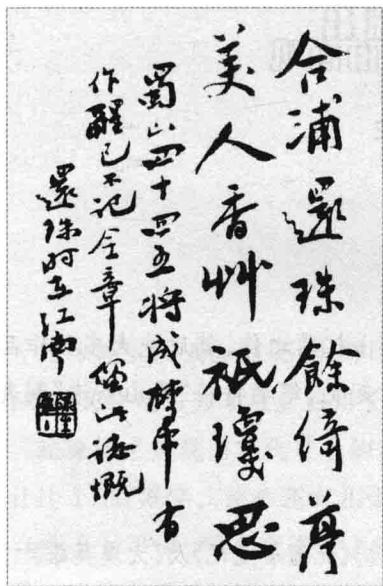 合浦還珠餘綺夢
美人香艸祇瓊思
蜀山四十四五将成醉中有
作醒已不记全章僅此誌慨
還珠时在江